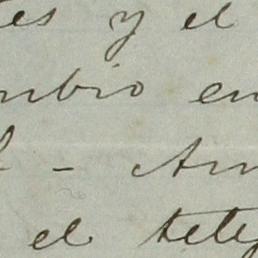 tes y el
mbio en
- Am
el tele